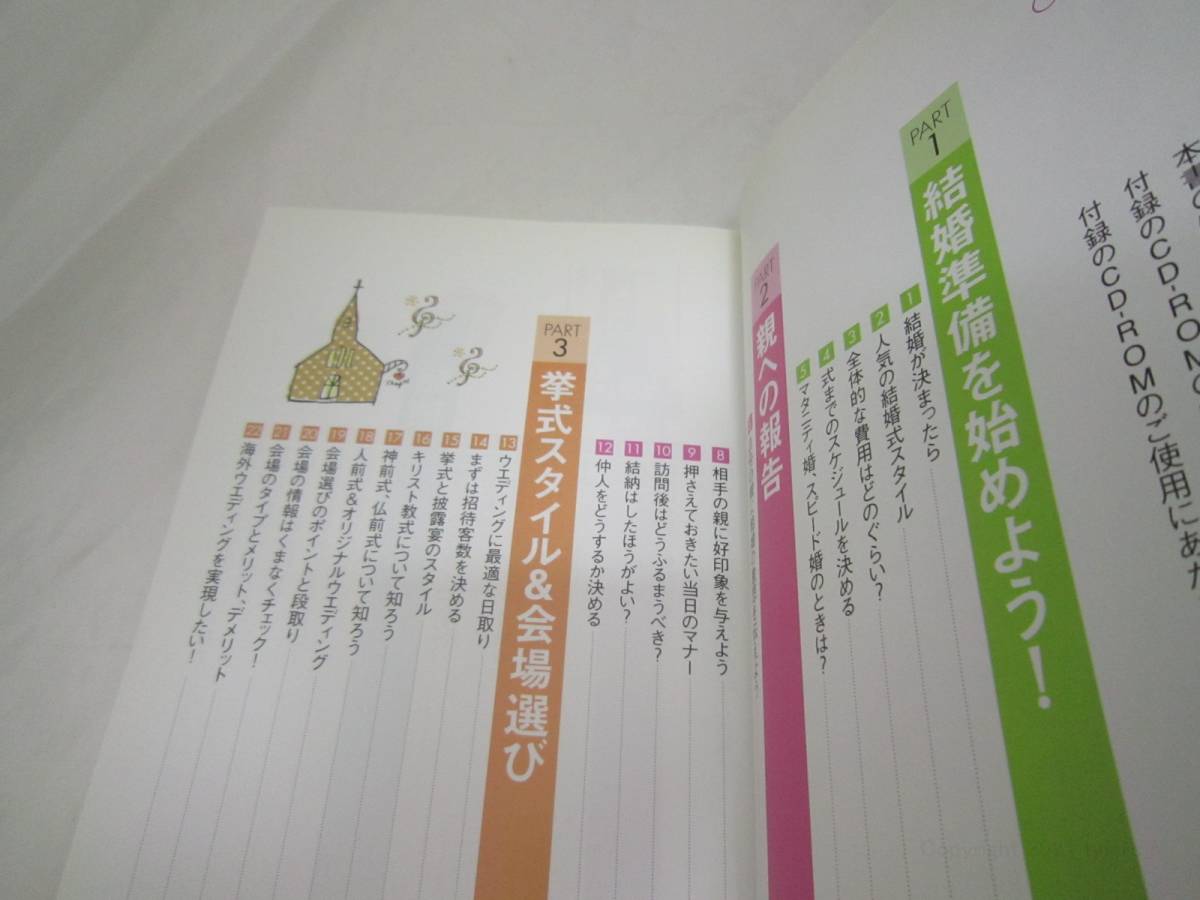 本書の
付録のCD-ROM
付録のCD-ROMのご使用にあた
PART
1
結婚準備を始めよう！
1 結婚が決まったら
2 人気の結婚式スタイル
3 全体的な費用はどのぐらい？
4 式までのスケジュールを決める
5 マタニティ婚、スピード婚のときは？
PART
2
親への報告
8 相手の親に好印象を与えよう
9 押さえておきたい当日のマナー
10 訪問後はどうふるまうべき？
11 結納はしたほうがよい？
12 仲人をどうするか決める
PART
3
挙式スタイル&会場選び
13 ウエディングに最適な日取り
14 まずは招待客数を決める
15 挙式と披露宴のスタイル
16 キリスト教式について知ろう
17 神前式、仏前式について知ろう
18 人前式&オリジナルウエディング
19 会場選びのポイントと段取り
20 会場の情報はくまなくチェック！
21 会場のタイプとメリット、デメリット
22 海外ウエディングを実現したい！
Chapel